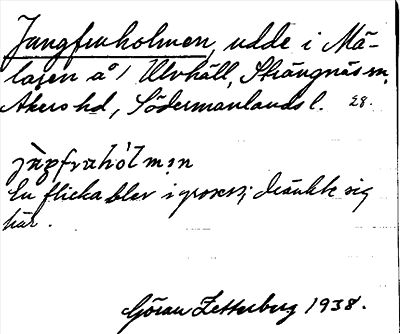 Jungfruholmen, udde i Mä-
laren å / Ulvhäll, Strängnäs sn,
Åkers hd, Södermanlands l. 28.
En flicka blev i grossess; dränkte sig
här.
Göran Zetterberg 1938.